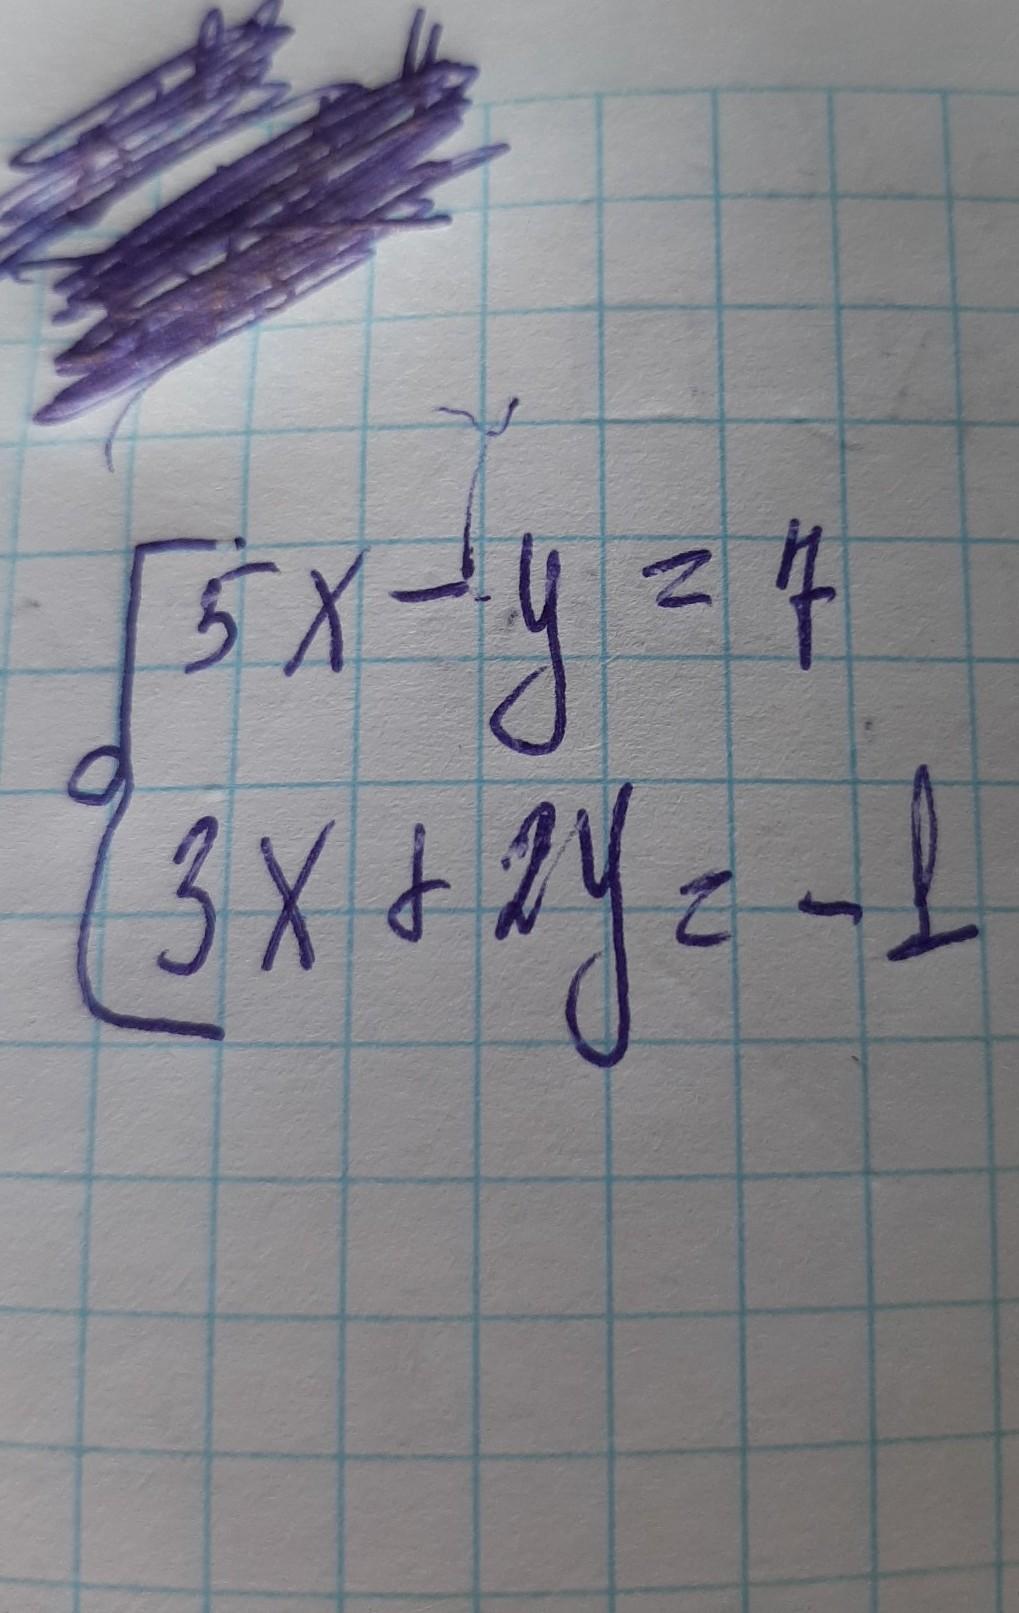 5x - y = 7
3x + 2y = - 1